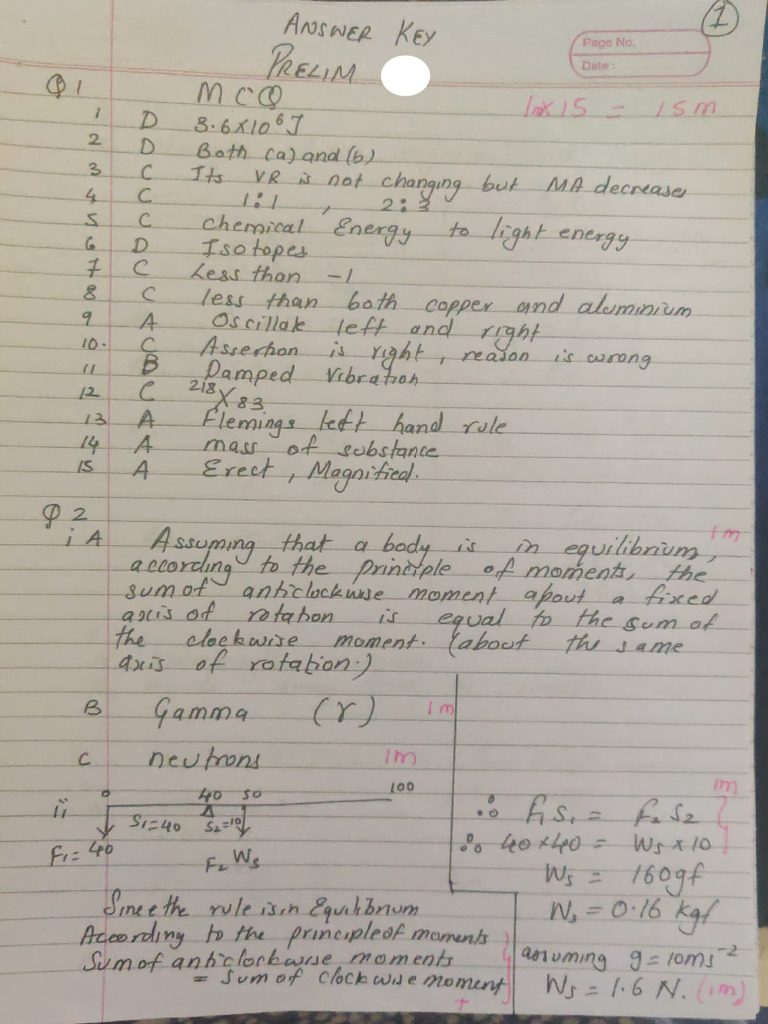 1
ANSWER KEY
Page No.
Date:
PRELIM
Q1 MCQ 1m x 15 = 15m
1 D 3.6x10⁶J
2 D Both (a) and (b)
3 C Its VR is not changing but MA decreases
4 C 1:1 , 2:3
5 C chemical Energy to light energy
6 D Isotopes
7 C Less than -1
8 C less than both copper and aluminium
9 A Oscillate left and right
10. C Assertion is right, reason is wrong
11 B Damped Vibration
12 C ²¹⁸X₈₃
13 A Flemings left hand rule
14 A mass of substance
15 A Erect, Magnified.
Q2
i A Assuming that a body is in equilibrium, 1m
according to the principle of moments, the
sum of anticlockwise moment about a fixed
axis of rotation is equal to the sum of
the clockwise moment. (about the same
axis of rotation.)
B Gamma (γ) 1m
C neutrons 1m
ii 0 40 50 100
S₁=40 S₂=10
F₁=40 F₂ Ws
Since the rule is in Equilibrium
According to the principle of moments
Sum of anticlockwise moments
= sum of clockwise moment
+
1m
∴ F₁S₁ = F₂S₂
∴ 40x40 = Ws x 10
Ws = 160gf
Ws = 0.16 kgf
assuming g=10ms⁻²
Ws = 1.6 N. (1m)